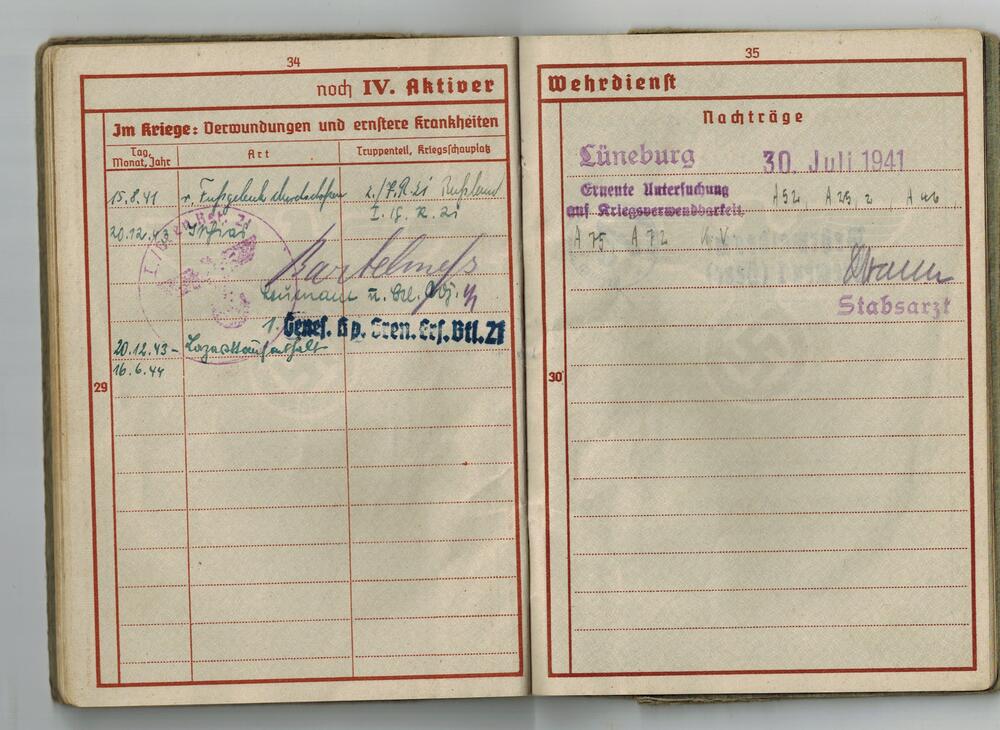 34
noch IV. Aktiver
Im Kriege: Verwundungen und ernstere Krankheiten
Tag, Monat, Jahr
Art
Truppenteil, Kriegsschauplatz
15.8.41 r. Fußgelenk 2./I.R. 21 Rußland
I. R. 21
20.12.43 Ischias
Bartelmeß
Leutnant u.
1. Genes. Kp. Gren. Ers. Btl. 21
20.12.43 - Lazarettaufenthalt
16.6.44
29
35
Wehrdienst
Nachträge
Lüneburg 30. Juli 1941
Erneute Untersuchung A 52 A 25,2
auf Kriegsverwendbarkeit,
A 75 A 72 k.v.
Stabsarzt
30